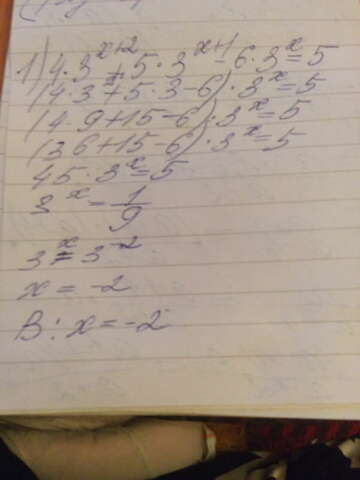 1) 4·3^{x+2} + 5·3^{x+1} - 6·3^x = 5
(4·3 + 5·3 - 6)·3^x = 5
(4·9 + 15 - 6)·3^x = 5
(36 + 15 - 6)·3^x = 5
45·3^x = 5
3^x = 1/9
3^x = 3^{-2}
x = -2
В: x = -2